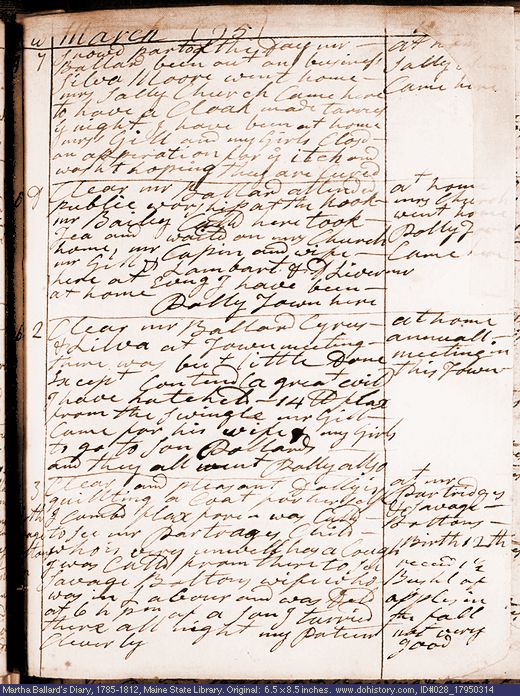 March 1795
7 Snowd part of the Day mr
Ballard been out on business
Silva Moore went home
mrs Sally Church Came here
to have a Cloak made tarried
y night I have been at home
mrs Gill and my Girls Closd
an opperation for y itch and
washt hoping they are Cured
at home
Sally
Came here
D Clear mr Ballard attended
public worship at the hook
mr Bailey Cald here took
Tea and waited on mrs Church
home, mr Capin and wife
mr Gill D Lambart & D Livermr
here at Evng I have been
at home Dolly Town here
at home
mrs Church
went home
Dolly
Came here
2 Clear mr Ballard Cyrus
& Silva at Town meeting
there was but little Done
Except Contend a great evil
I have hatcheld 14 lb flax
from the swingle mr Gill
Came for his wife & my girls
to go to Son Pollards
and they all went Dolly allso
at home
annuall
meeting in
this Town
3 Clear and pleasant Dolly is
quillting a Coat for herself
I Combd flax fore n was Calld
to see mr Partrages Child
who is very unwell has a Cough
I was Calld from there to see
Savage Boltons wife who
was in Labour and was Dld
at 6 h pm of a Son I tarried
there all night my Patient
Cleverly
at mr
Partridges
& Savage
Boltons
Birth 12th
receivd 1½
Bushl of
apples in
the fall
not very
good
Martha Ballard's Diary, 1785-1812, Maine State Library. Original: 6.5 x 8.5 inches. www.dohistory.com, ID#028_17950314